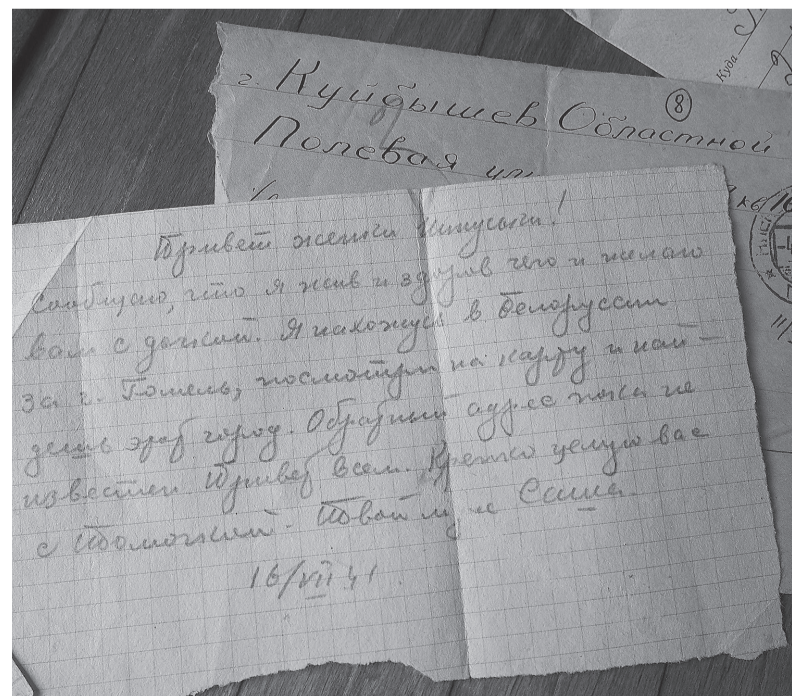 Куда
г. Куйбышев Областной
8
Полевая ул.
кв 16
Привет женка Кинусыки!
Сообщаю, что я жив и здоров чего и желаю
вам с дочкой. Я нахожусь в Белоруссии
за г. Гомель, посмотри на карту и най-
дешь этот город. Обратный адрес пока не
известен Привет всем. Крепко целую вас
с Томочкой. Твой муж Саша.
16/VII 41